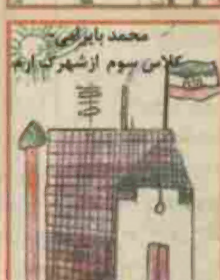 محمد بابرامی-
کلاس سوم ازشهرک ارم